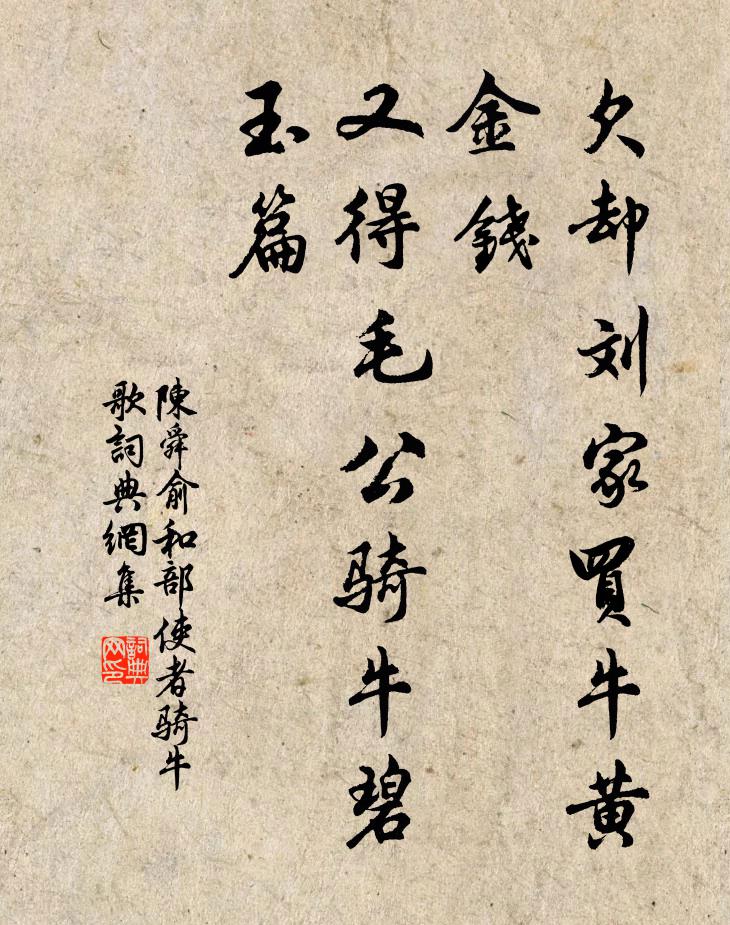 欠却刘家買牛黄
金錢
又得毛公骑牛碧
玉篇
陳舜俞和部使者骑牛
歌詞典網集
詞典
网印